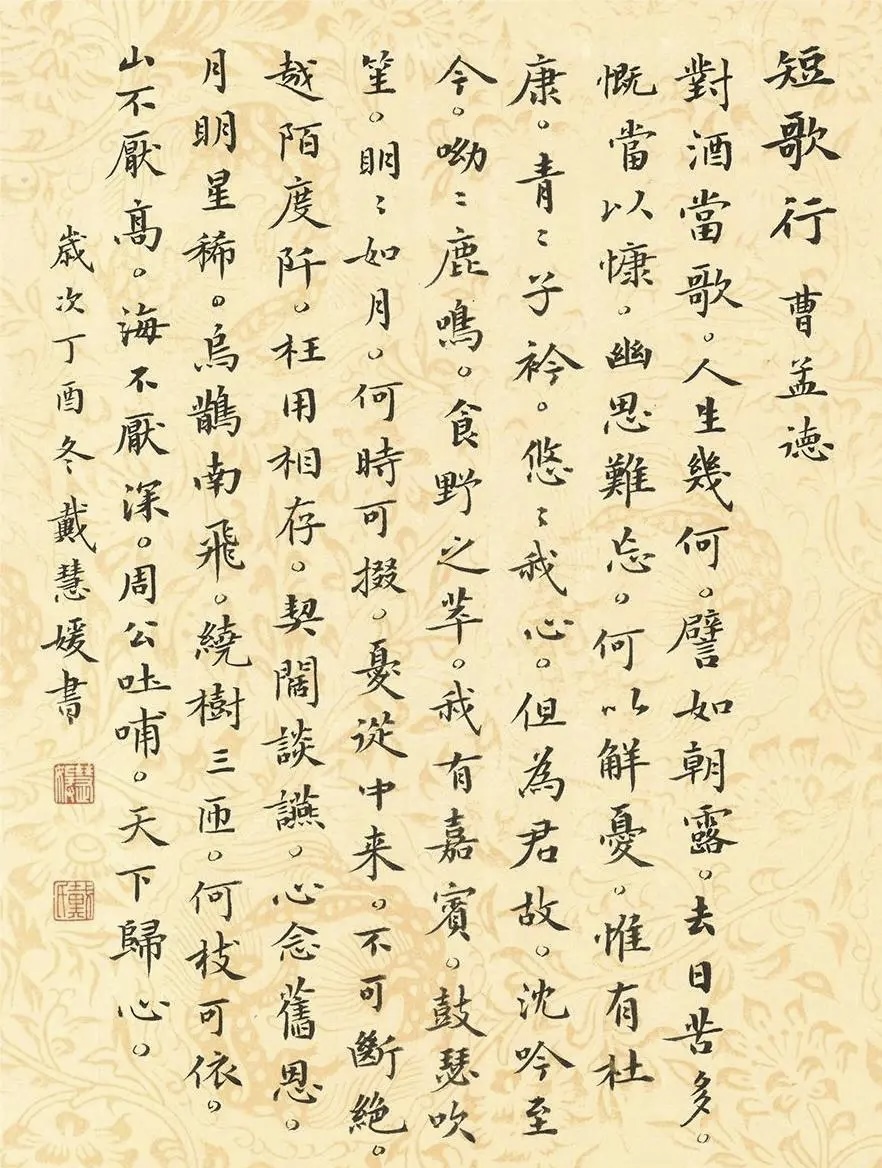 短歌行 曹孟德
對酒當歌。人生幾何。譬如朝露。去日苦多。
慨當以慷。幽思難忘。何以解憂。惟有杜
康。青〻子衿。悠〻我心。但為君故。沈吟至
今。呦〻鹿鳴。食野之苹。我有嘉賓。鼓瑟吹
笙。明〻如月。何時可掇。憂從中来。不可斷絕。
越陌度阡。枉用相存。契闊談讌。心念舊恩。
月明星稀。烏鵲南飛。繞樹三匝。何枝可依。
山不厭高。海不厭深。周公吐哺。天下歸心。
歲次丁酉冬戴慧媛書
慧媛
戴氏